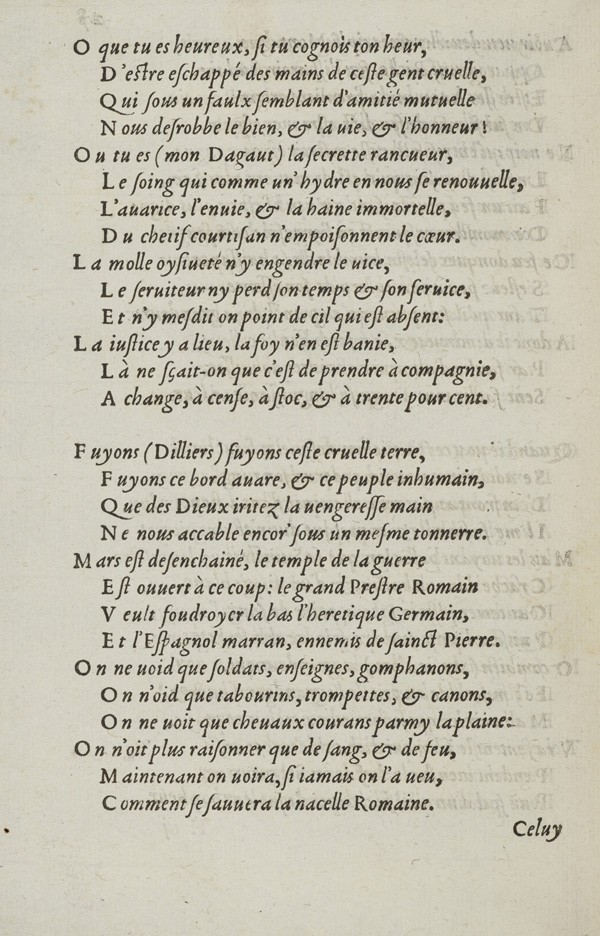 O que tu es heureux, ſi tu cognois ton heur,
D'eſtre eſchappé des mains de ceſte gent cruelle,
Qui ſous un faulx ſemblant d'amitié mutuelle
Nous deſrobbe le bien, & la uie, & l'honneur!
Ou tu es (mon Dagaut) la ſecrette rancueur,
Le ſoing qui comme un' hydre en nous ſe renouuelle,
L'auarice, l'enuie, & la haine immortelle,
Du chetif courtiſan n'empoiſonnent le cœur.
La molle oyſiueté n'y engendre le uice,
Le ſeruiteur ny perd ſon temps & ſon ſeruice,
Et n'y meſdit on point de cil qui eſt abſent:
La iuſtice y a lieu, la foy n'en eſt banie,
Là ne ſçait-on que c'eſt de prendre à compagnie,
A change, à cenſe, à ſtoc, & à trente pour cent.
Fuyons (Dilliers) fuyons ceſte cruelle terre,
Fuyons ce bord auare, & ce peuple inhumain,
Que des Dieux iritez la uengereſſe main
Ne nous accable encor' ſous un meſme tonnerre.
Mars eſt deſenchainé, le temple de la guerre
Eſt ouuert à ce coup: le grand Preſtre Romain
Veult foudroyer la bas l'heretique Germain,
Et l'Eſpagnol marran, ennemis de ſainct Pierre.
On ne uoid que ſoldats, enſeignes, gomphanons,
On n'oid que tabourins, trompettes, & canons,
On ne uoit que cheuaux courans parmy la plaine:
On n'oit plus raiſonner que de ſang, & de feu,
Maintenant on uoira, ſi iamais on l'a ueu,
Comment ſe ſauuera la nacelle Romaine.
Celuy